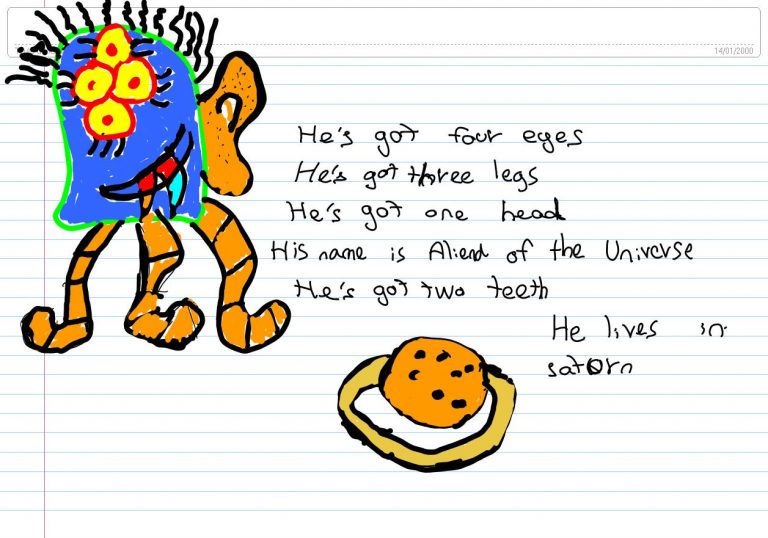 14/01/2000
He's got four eyes
He's got three legs
He's got one head
His name is Aliend of the Universe
He's got two teeth
He lives in
satorn